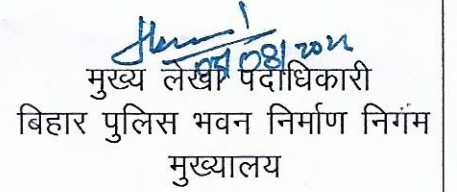 08/08/2022
मुख्य लेखा पदाधिकारी
बिहार पुलिस भवन निर्माण निगम
मुख्यालय